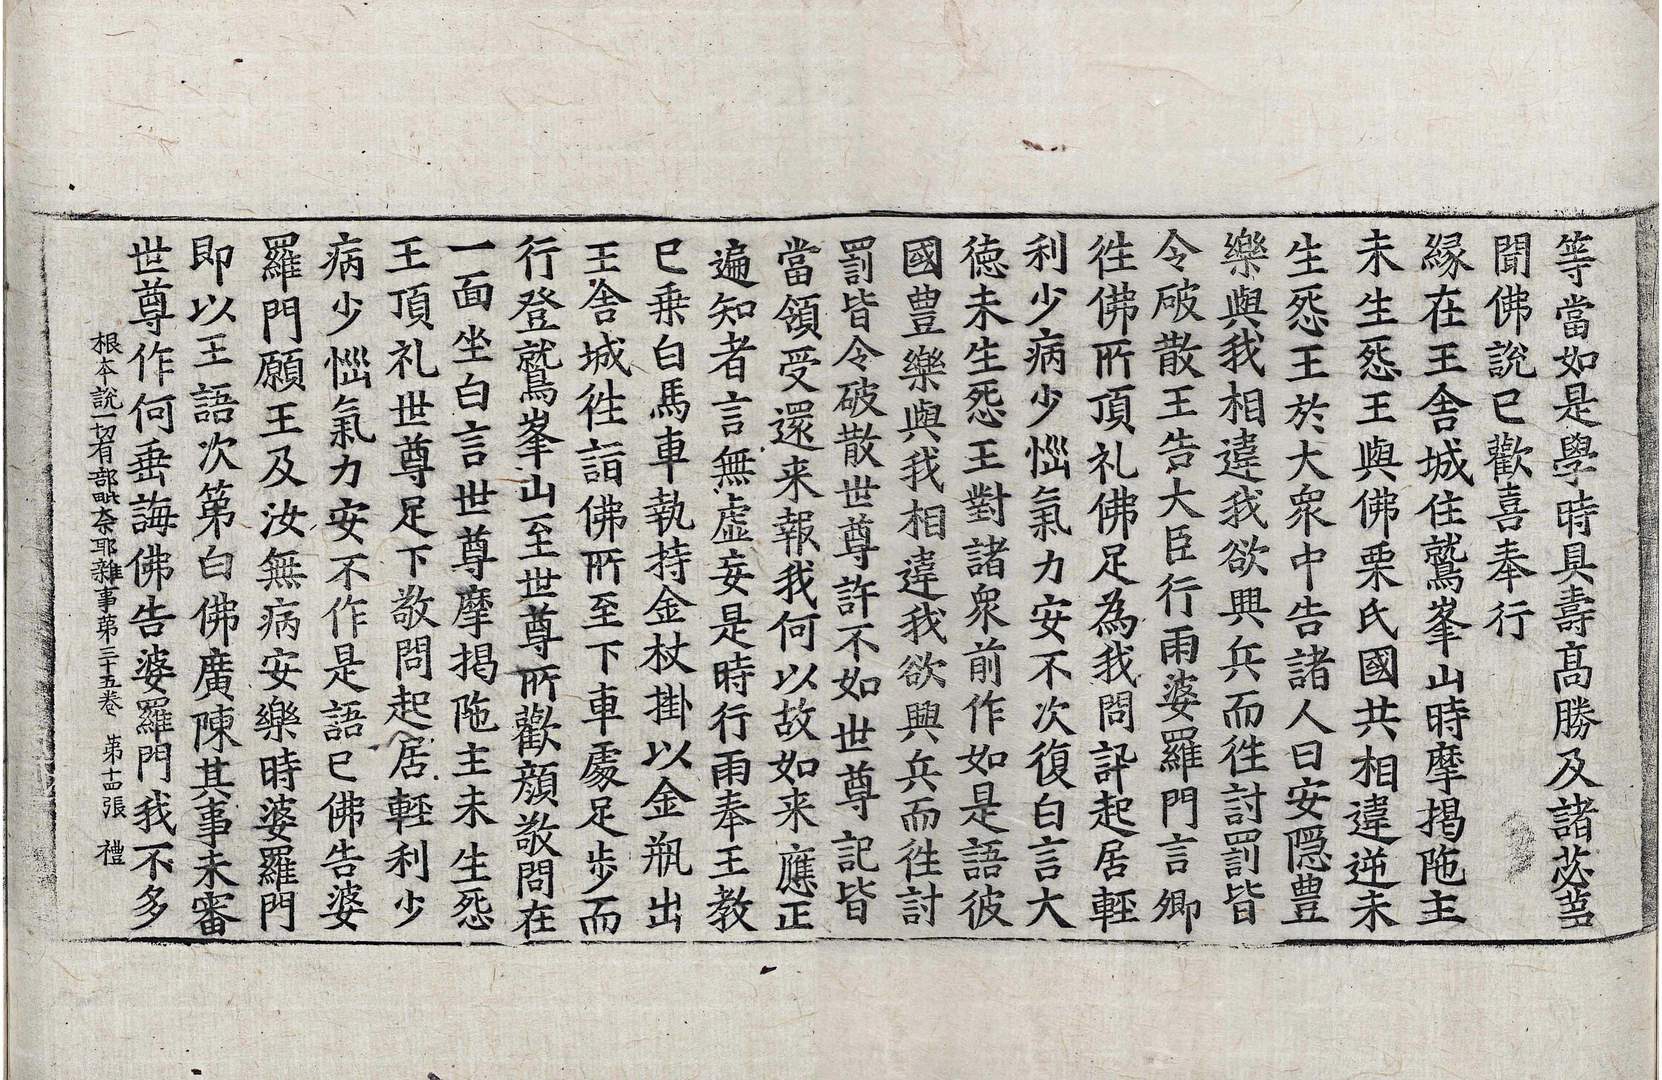 等當如是學時具壽高勝及諸苾芻
聞佛說已歡喜奉行
緣在王舍城住鷲峯山時摩揭陁主
未生怨王與佛栗氏國共相違逆未
生怨王於大衆中告諸人曰安隠豊
樂與我相違我欲興兵而徃討罰皆
令破散王告大臣行雨婆羅門言卿
徃佛所頂礼佛足為我問訊起居輕
利少病少惱氣力安不次復白言大
徳未生怨王對諸衆前作如是語彼
國豊樂與我相違我欲興兵而徃討
罰皆令破散世尊許不如世尊記皆
當領受還来報我何以故如来應正
遍知者言無虛妄是時行雨奉王教
已乗白馬車執持金杖掛以金瓶出
王舍城徃詣佛所至下車處足步而
行登鷲峯山至世尊所歡顔敬問在
一面坐白言世尊摩揭陁主未生怨
王頂礼世尊足下敬問起居輕利少
病少惱氣力安不作是語已佛告婆
羅門願王及汝無病安樂時婆羅門
即以王語次第白佛廣陳其事未審
世尊作何垂誨佛告婆羅門我不多
根本說一切有部毗奈耶雜事第三十五卷 第十四張 禮